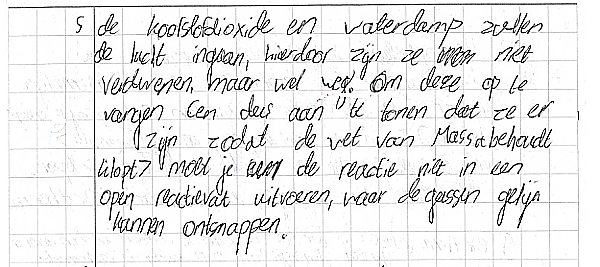 5 de koolstofdioxide en waterdamp zullen
de lucht ingaan, hierdoor zijn ze niet
verdwenen, maar wel weg. Om deze op te
vangen (en dus aan te tonen dat ze er
zijn zodat de wet van Massabehoudt
klopt) moet je de reactie niet in een
open reactievat uitvoeren, waar de gassen gelijk
kunnen ontsnappen.